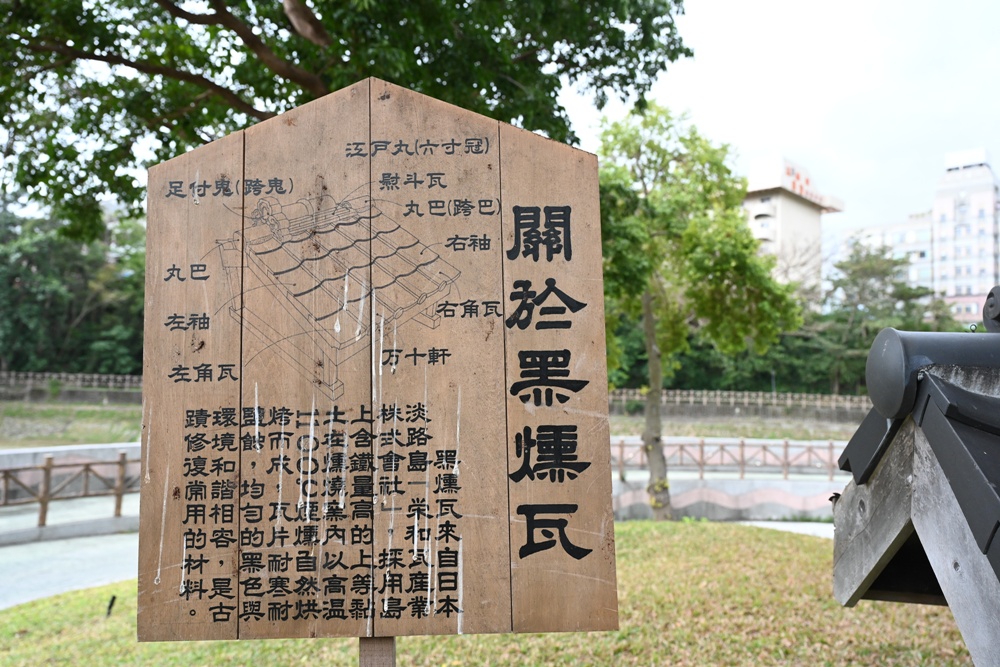 江戸丸(六寸冠)
足付鬼(跨鬼)
熨斗瓦
丸巴(跨巴)
右袖
丸巴
右角瓦
左袖
万十軒
左角瓦
關於黑燻瓦
黑燻瓦來自日本
淡路島「栄和瓦産業
株式會社」,採用島
上含鐵量高的上等黏
土在燻燒窯內以高溫
〇〇℃煙燻自然烘
焙而成,瓦片耐寒耐
鹽蝕,均勻的黑色與
環境和諧相容,是古
蹟修復常用的材料。